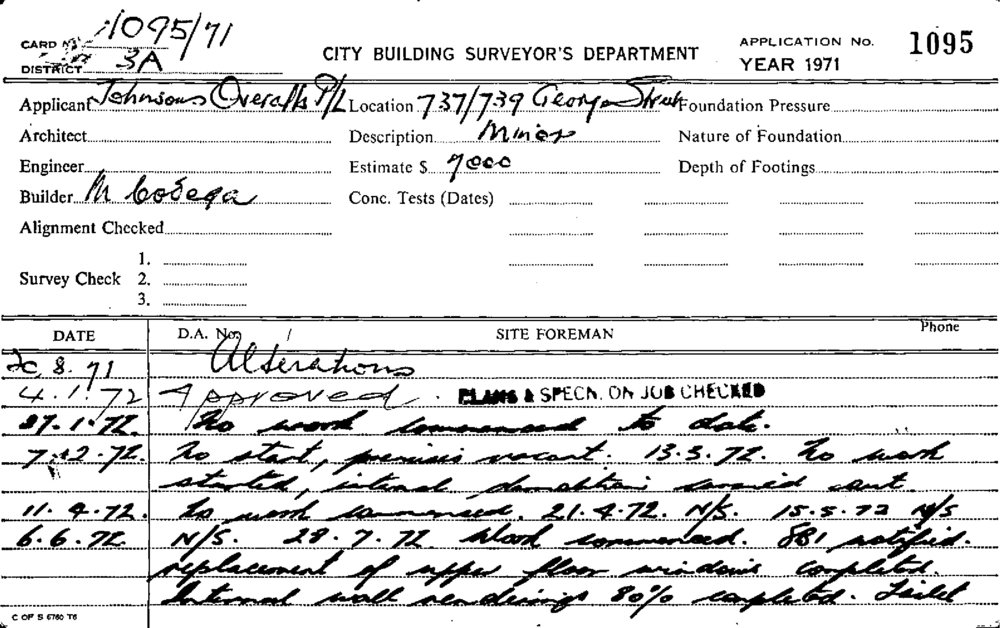 CARD No. 1095/71
DISTRICT 3A
CITY BUILDING SURVEYOR'S DEPARTMENT
APPLICATION No. 1095
YEAR 1971
Applicant Johnsons Overalls P/L Location 737/739 George Street Foundation Pressure
Architect Description Minor Nature of Foundation
Engineer Estimate $ 7000 Depth of Footings
Builder M Codega Conc. Tests (Dates)
Alignment Checked
1.
Survey Check 2.
3.
DATE D.A. No. / SITE FOREMAN Phone
20.8.71 Alterations
4.1.72 Approved. PLANS & SPECN. ON JOB CHECKED
27.1.72. No work commenced to date.
7.2.72. No start, premises vacant. 13.3.72. No work
started, internal demolition carried out.
11.4.72. No work commenced. 21.4.72. N/S. 15.5.72 N/S
6.6.72 N/S. 28.7.72. Work commenced. 881 notified.
replacement of upper floor windows completed.
Internal wall renderings 80% completed. Toilet
C OF S 6760 T6